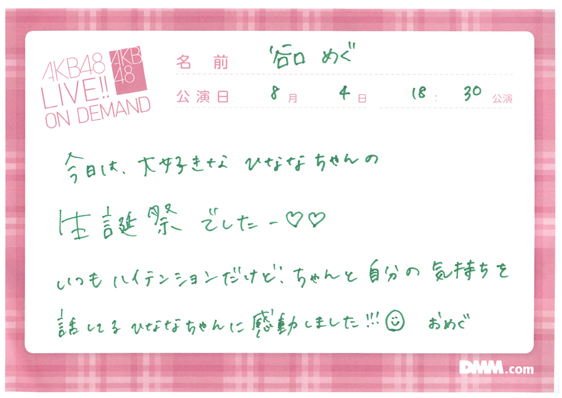 AKB48
LIVE!!
ON DEMAND
AKB
48
名前 谷口 めぐ
公演日 8月 4日 18:30公演
今日は、大好きな ひななちゃんの
生誕祭 でしたー♡♡
いつもハイテンションだけど、ちゃんと自分の気持ちを
話してるひななちゃんに感動しました!!!☺ おめぐ
DMM.com